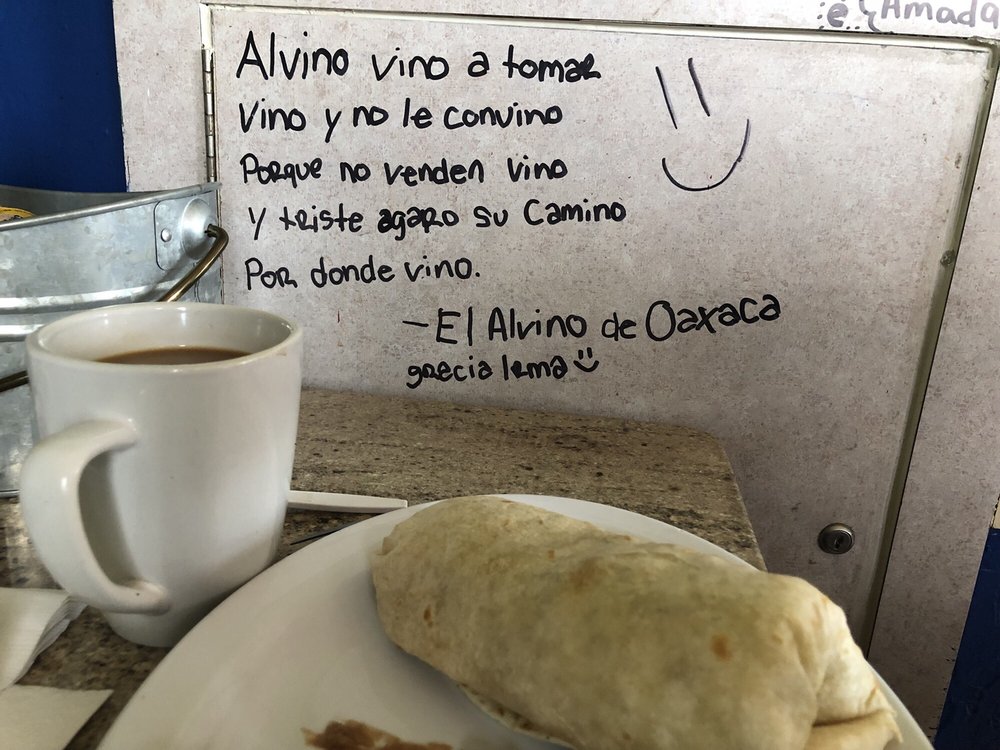 Amada
Alvino vino a tomar
Vino y no le convino
Porque no venden vino
Y triste agaro su Camino
Por donde vino.
- El Alvino de Oaxaca
grecia lrma